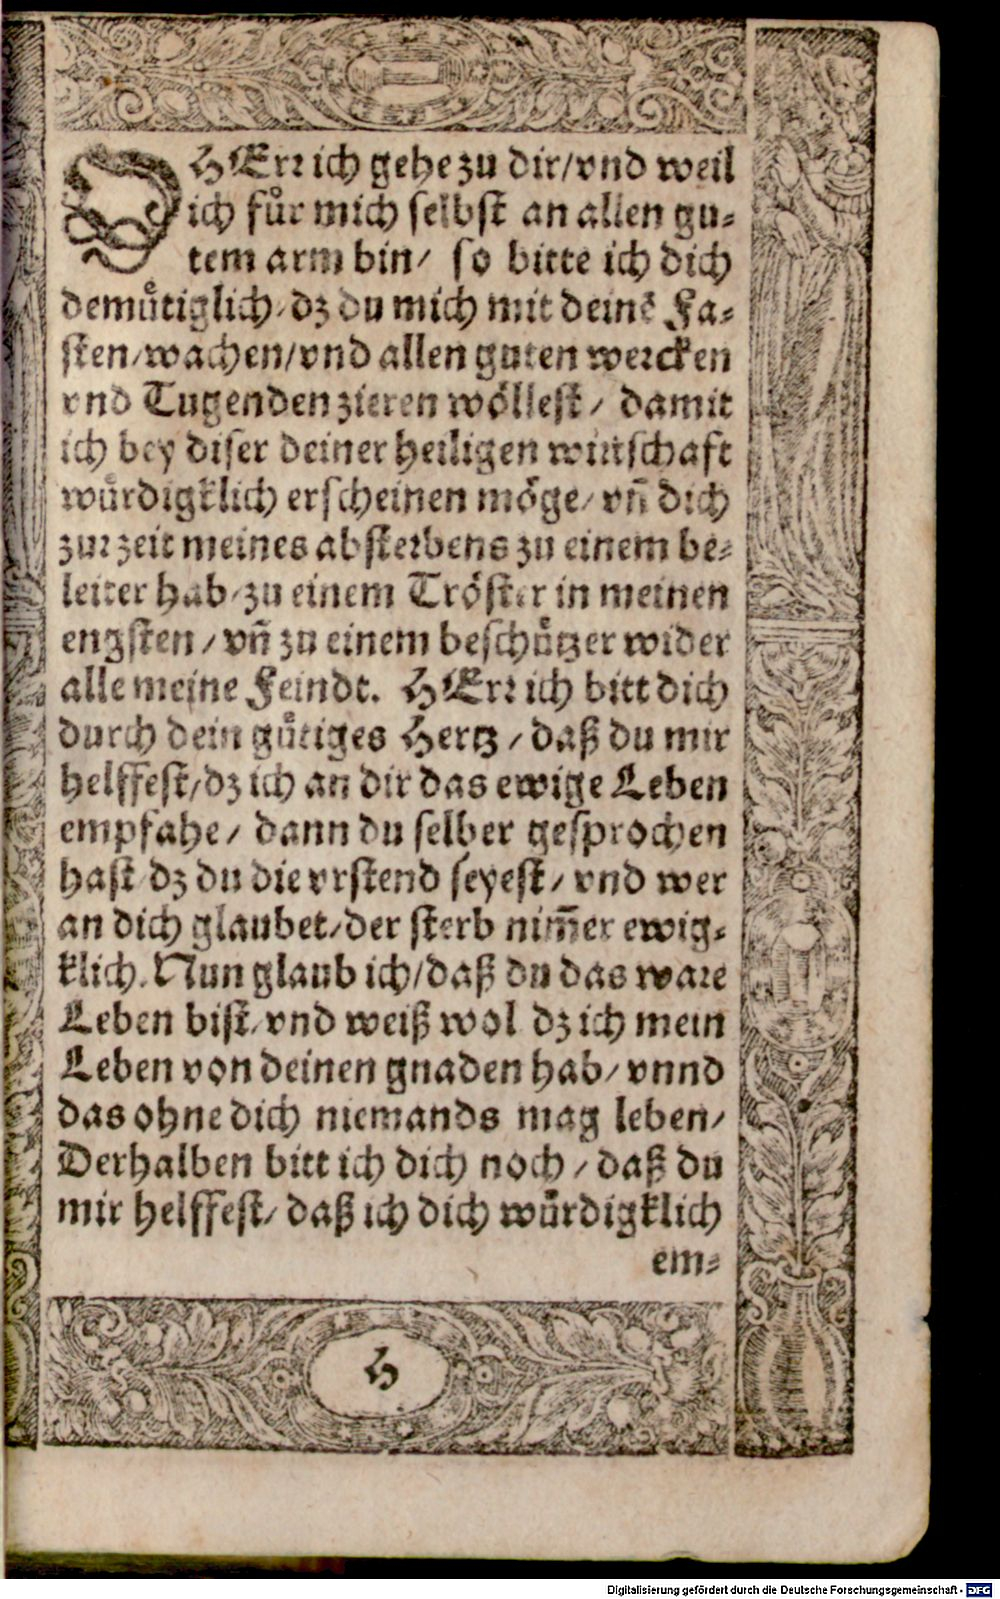 O HErr ich gehe zu dir/vnd weil
ich fuͤr mich selbst an allen gu⸗
tem arm bin/ so bitte ich dich
demuͤtiglich/dz du mich mit deinē Fa⸗
sten/wachen/vnd allen guten wercken
vnd Tugenden zieren woͤllest/ damit
ich bey diser deiner heiligen wirtschaft
wuͤrdigklich erscheinen moͤge/ vñ dich
zur zeit meines absterbens zu einem be⸗
leiter hab/zu einem Troͤster in meinen
engsten/vñ zu einem beschuͤtzer wider
alle meine Feindt. HErr ich bitt dich
durch dein guͤtiges Hertz/daß du mir
helffest/dz ich an dir das ewige Leben
empfahe/ dann du selber gesprochen
hast dz du die vrstend seyest/ vnd wer
an dich glaubet/der sterb nim̄er ewig⸗
klich. Nun glaub ich/daß du das ware
Leben bist/vnd weiß wol dz ich mein
Leben von deinen gnaden hab/ vnnd
das ohne dich niemands mag leben/
Derhalben bitt ich dich noch/daß du
mir helffest/ daß ich dich wuͤrdigklich
em⸗
H
Digitalisierung gefördert durch die Deutsche Forschungsgemeinschaft - DFG